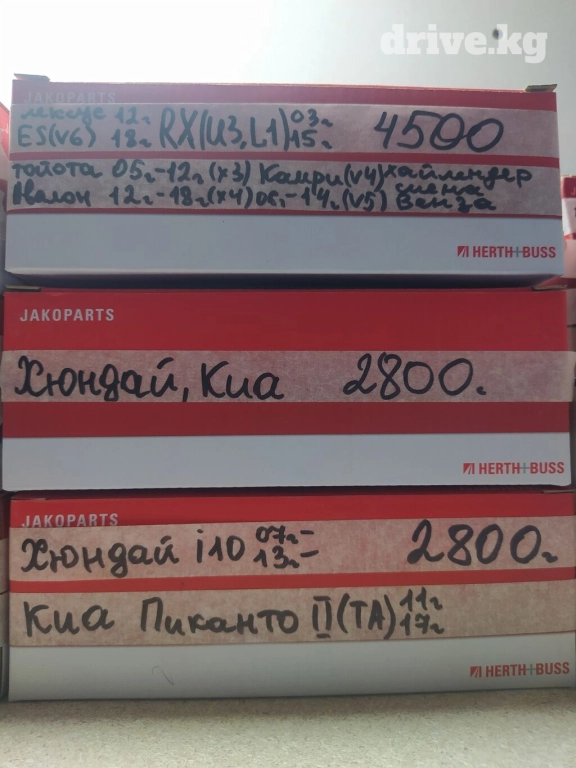 drive.kg
JAKOPARTS
лексус 12г. 03г.
ES(V6) 18г. RX(U3,L1) 15г. 4500
тойота 05г.-12г.(х3) Камри(v4) хайлендер
Авалон 12г.-18г.(х4) 06г.-14г.(v5) сиена Венза
HERTH+BUSS
JAKOPARTS
Хюндай, Киа 2800.
HERTH+BUSS
JAKOPARTS
Хюндай i10 07г.- 13г.- 2800г.
Киа Пиканто II(TA) 11г. 17г.
HERTH+BUSS